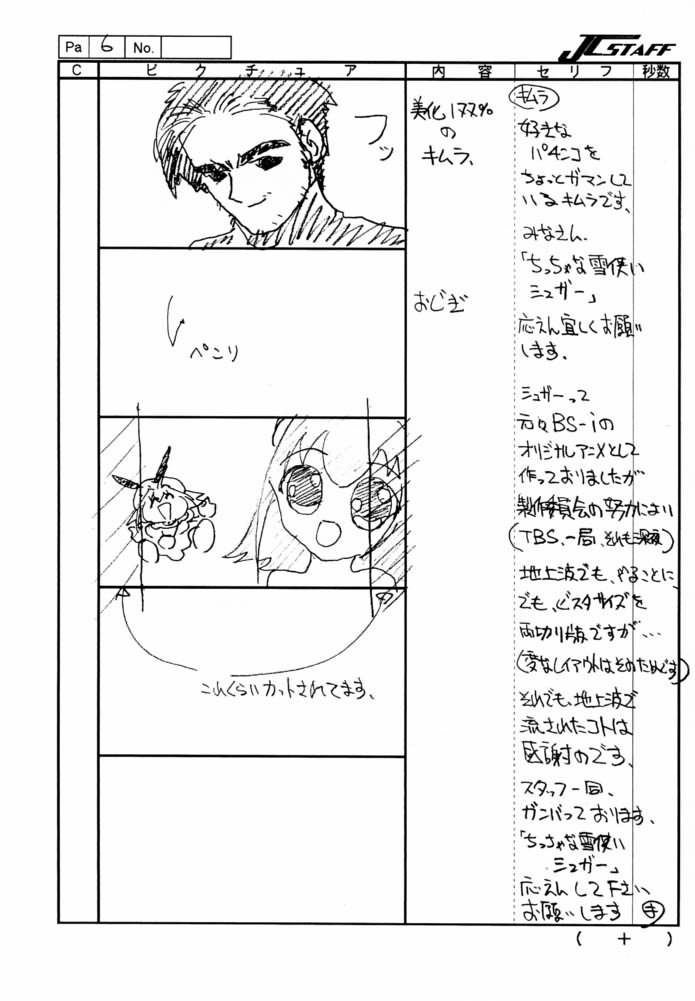 Pa 6 No.
JC STAFF
C ピクチュア 内容 セリフ 秒数
フッ
美化177%
の
キムラ、
キムラ
好きな
パチンコを
ちょっとガマンして
いるキムラです、
みなさん、
「ちっちゃな雪使い
シュガー」
応えん宜しくお願い
します、
ペコリ
おじぎ
シュガーって
元々BS-iの
オリジナルアニメとして
作っておりましたが
製作委員会の努力により
(TBS、一局、それも深夜)
地上波でも、やることに、
でも、ビスタサイズを
両切り版ですが…
(変なレイアウトはそのためです)
それでも、地上波で
流されたコトは
感謝のです、
スタッフ一同、
ガンバっております、
「ちっちゃな雪使い
シュガー」
応えんして下さい
お願いします
これくらいカットされてます、
( + )